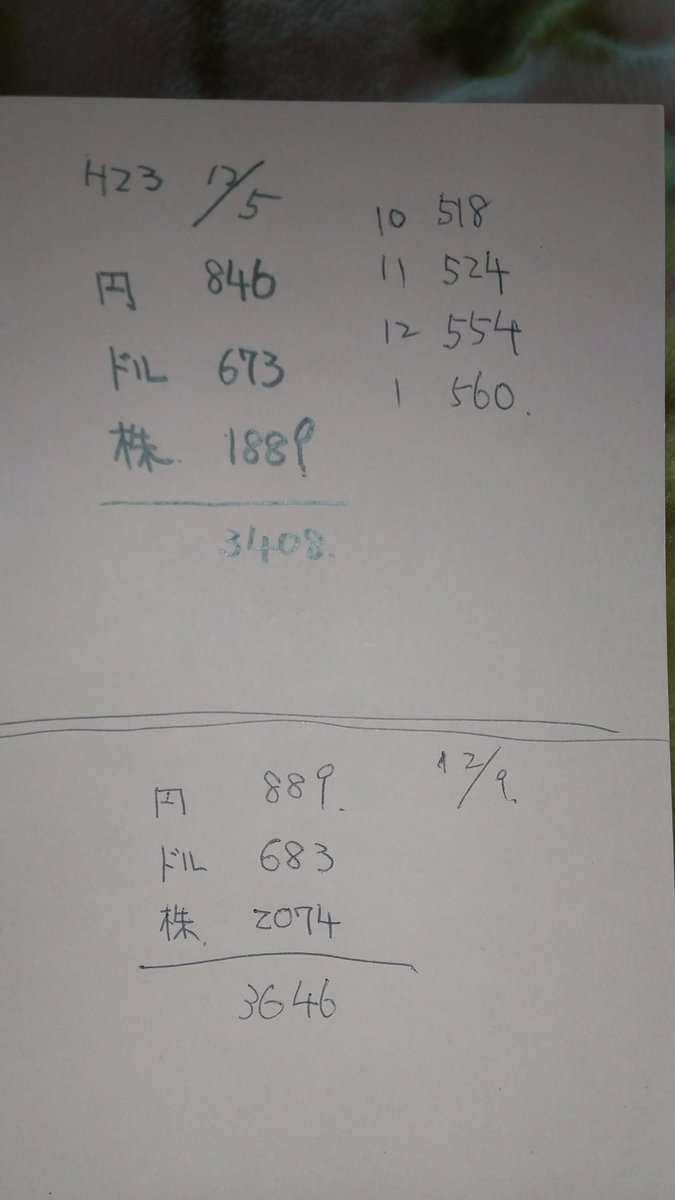 H23 12/5
円 846
ドル 673
株. 1889
3408.
10 518
11 524
12 554
1 560.
12/9.
円 889.
ドル 683
株. 2074
3646